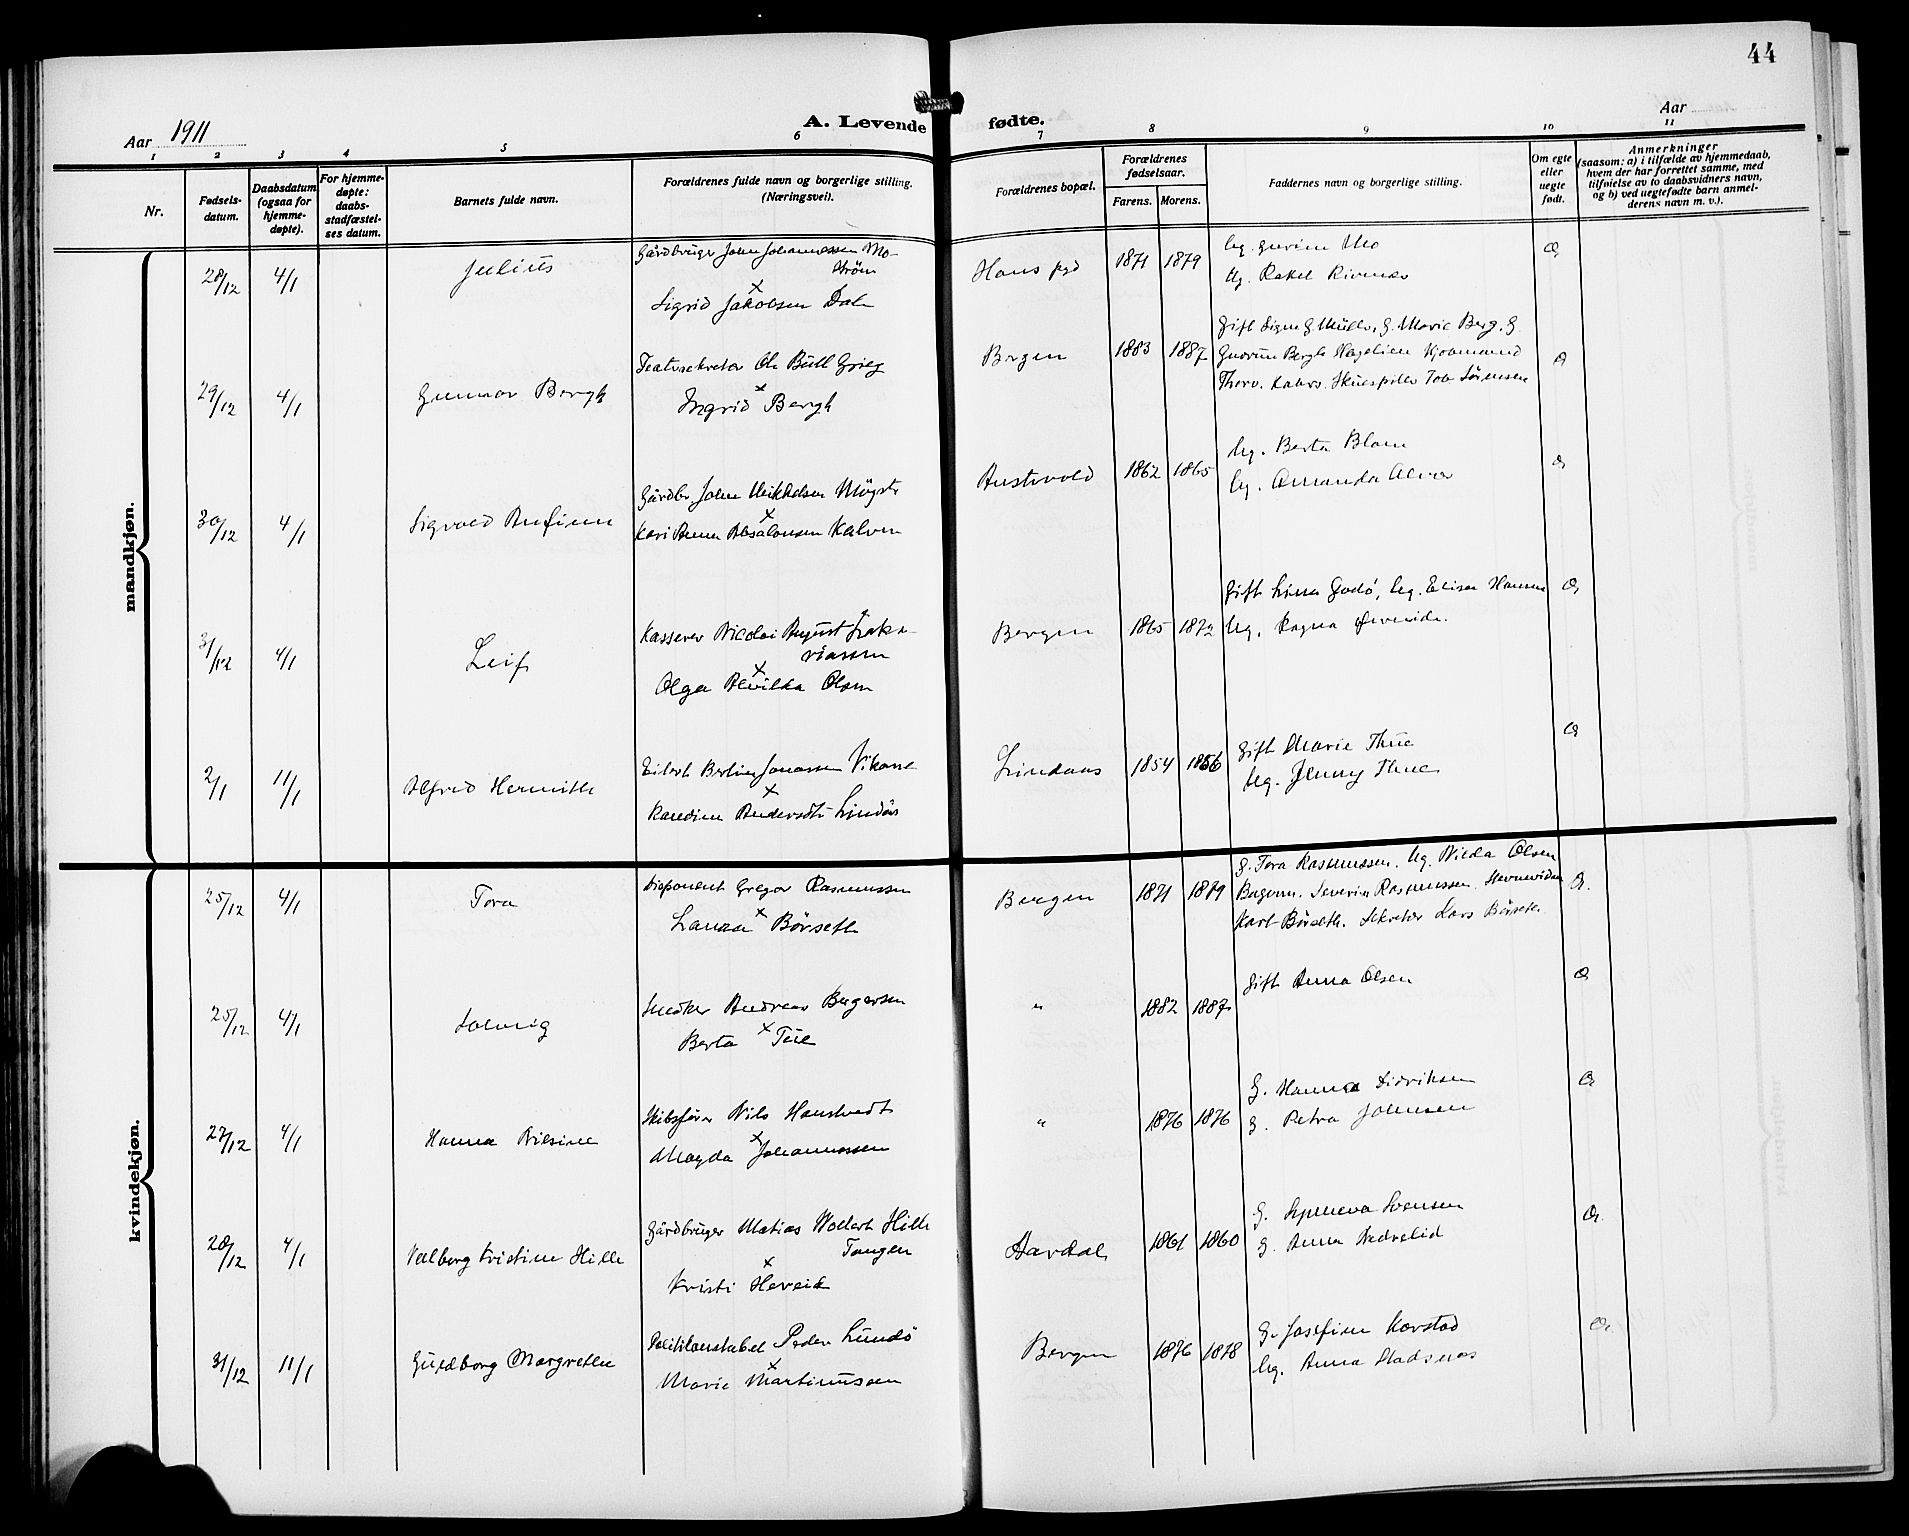 44
Aar 1911
A. Levende fødte.
Aar
1 2 3 4 5 6 7 8 9 10 11
Nr.
Fødsels-
datum.
Daabsdatum
(ogsaa for
hjemme-
døpte).
For hjemme-
døpte:
daabs-
stadfæstel-
ses datum.
Barnets fulde navn.
Forældrenes fulde navn og borgerlige stilling.
(Næringsvei).
Forældrenes bopæl.
Forældrenes
fødselsaar.
Farens. Morens.
Faddernes navn og borgerlige stilling.
Om egte
eller
uegte
født.
Anmerkninger
(saasom: a) i tilfælde av hjemmedaab,
hvem der har forrettet samme, med
tilføielse av to daabsvidners navn,
og b) ved uegtefødte barn anmel-
derens navn m. v.).
mandkjøn.
28/12 4/1 Julius
Gårdbruger John Johannessen Mo-
ström
x
Sigrid Jakobsen Dale
1871 1879
Ug. Rakel Rivenes
29/12 4/1 Gunnar Bergh
Teatersekretær Ole Bull Grieg
x
Ingrid Bergh
Bergen 1883 1887
Gift Signe G Müller, G. Marie Berg, G.
Gudrun Bergh Hagelien Kjøbmand
Thorv. Skuespiller Tob Sörensen
30/12 4/1 Sigvald Anfinn
Gårdbr John Mikkelsen Mögstr
x
Kari Anna Absalonsen Kalven
Austevold 1862 1865
Ug. Berta Blom
Ug. Amanda Alver
31/12 4/1 Leif
Kasserer Nicolai August Zaka-
riassen
x
Olga Alvilda Olsen
Bergen 1865 1872
Gift Lina Godø, Ug. Elisa Hansen
Ug. Ragna
2/1 11/1 Alfred Hermith
Eilert Berlin Jonassen Vikane
x
Karedine Andersdt. Lindås
Lindaas 1854 1866
Gift Marie Thue
Ug. Jenny Thue
kvindekjøn.
25/12 4/1 Tora
Disponent Gregor Rasmussen
x
Laura Börseth
Bergen 1871 1879
G. Tora Rasmussen. Ug. Vilda Olsen
Bagerm. Severin Rasmussen.
Karl Börseth. Sekretær Lars Börseth.
25/12 4/1 Solveig
Snedker Andreas Bergersen
x
Berta Tue
" 1882 1887
Gift Anna Olsen
27/12 4/1 Hanna Nilsine
Skibsfører Nils Hanstvedt
x
Magda Johannessen
" 1876 1876
G. Hanna Didriksen
G. Petra Johnsen
28/12 4/1 Valborg Kristine Hille
Gårdbruger Matias Wollert Hille
Tangen
x
Kristi Hereid
Aardal 1861 1860
G. Synneva Svensen
G. Anna Nedrelid
31/12 11/1 Guldborg Margrethe
Politikonstabel Peder Lundö
x
Marie Martinussen
Bergen 1876 1878
G. Josefine Korstad
Ug. Anna Stadsnes